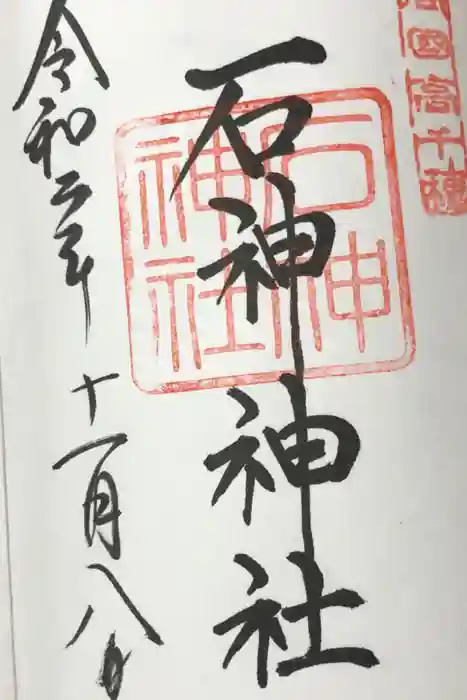 国高千穂
石神神社
石神
神社
令和二年十一月八日